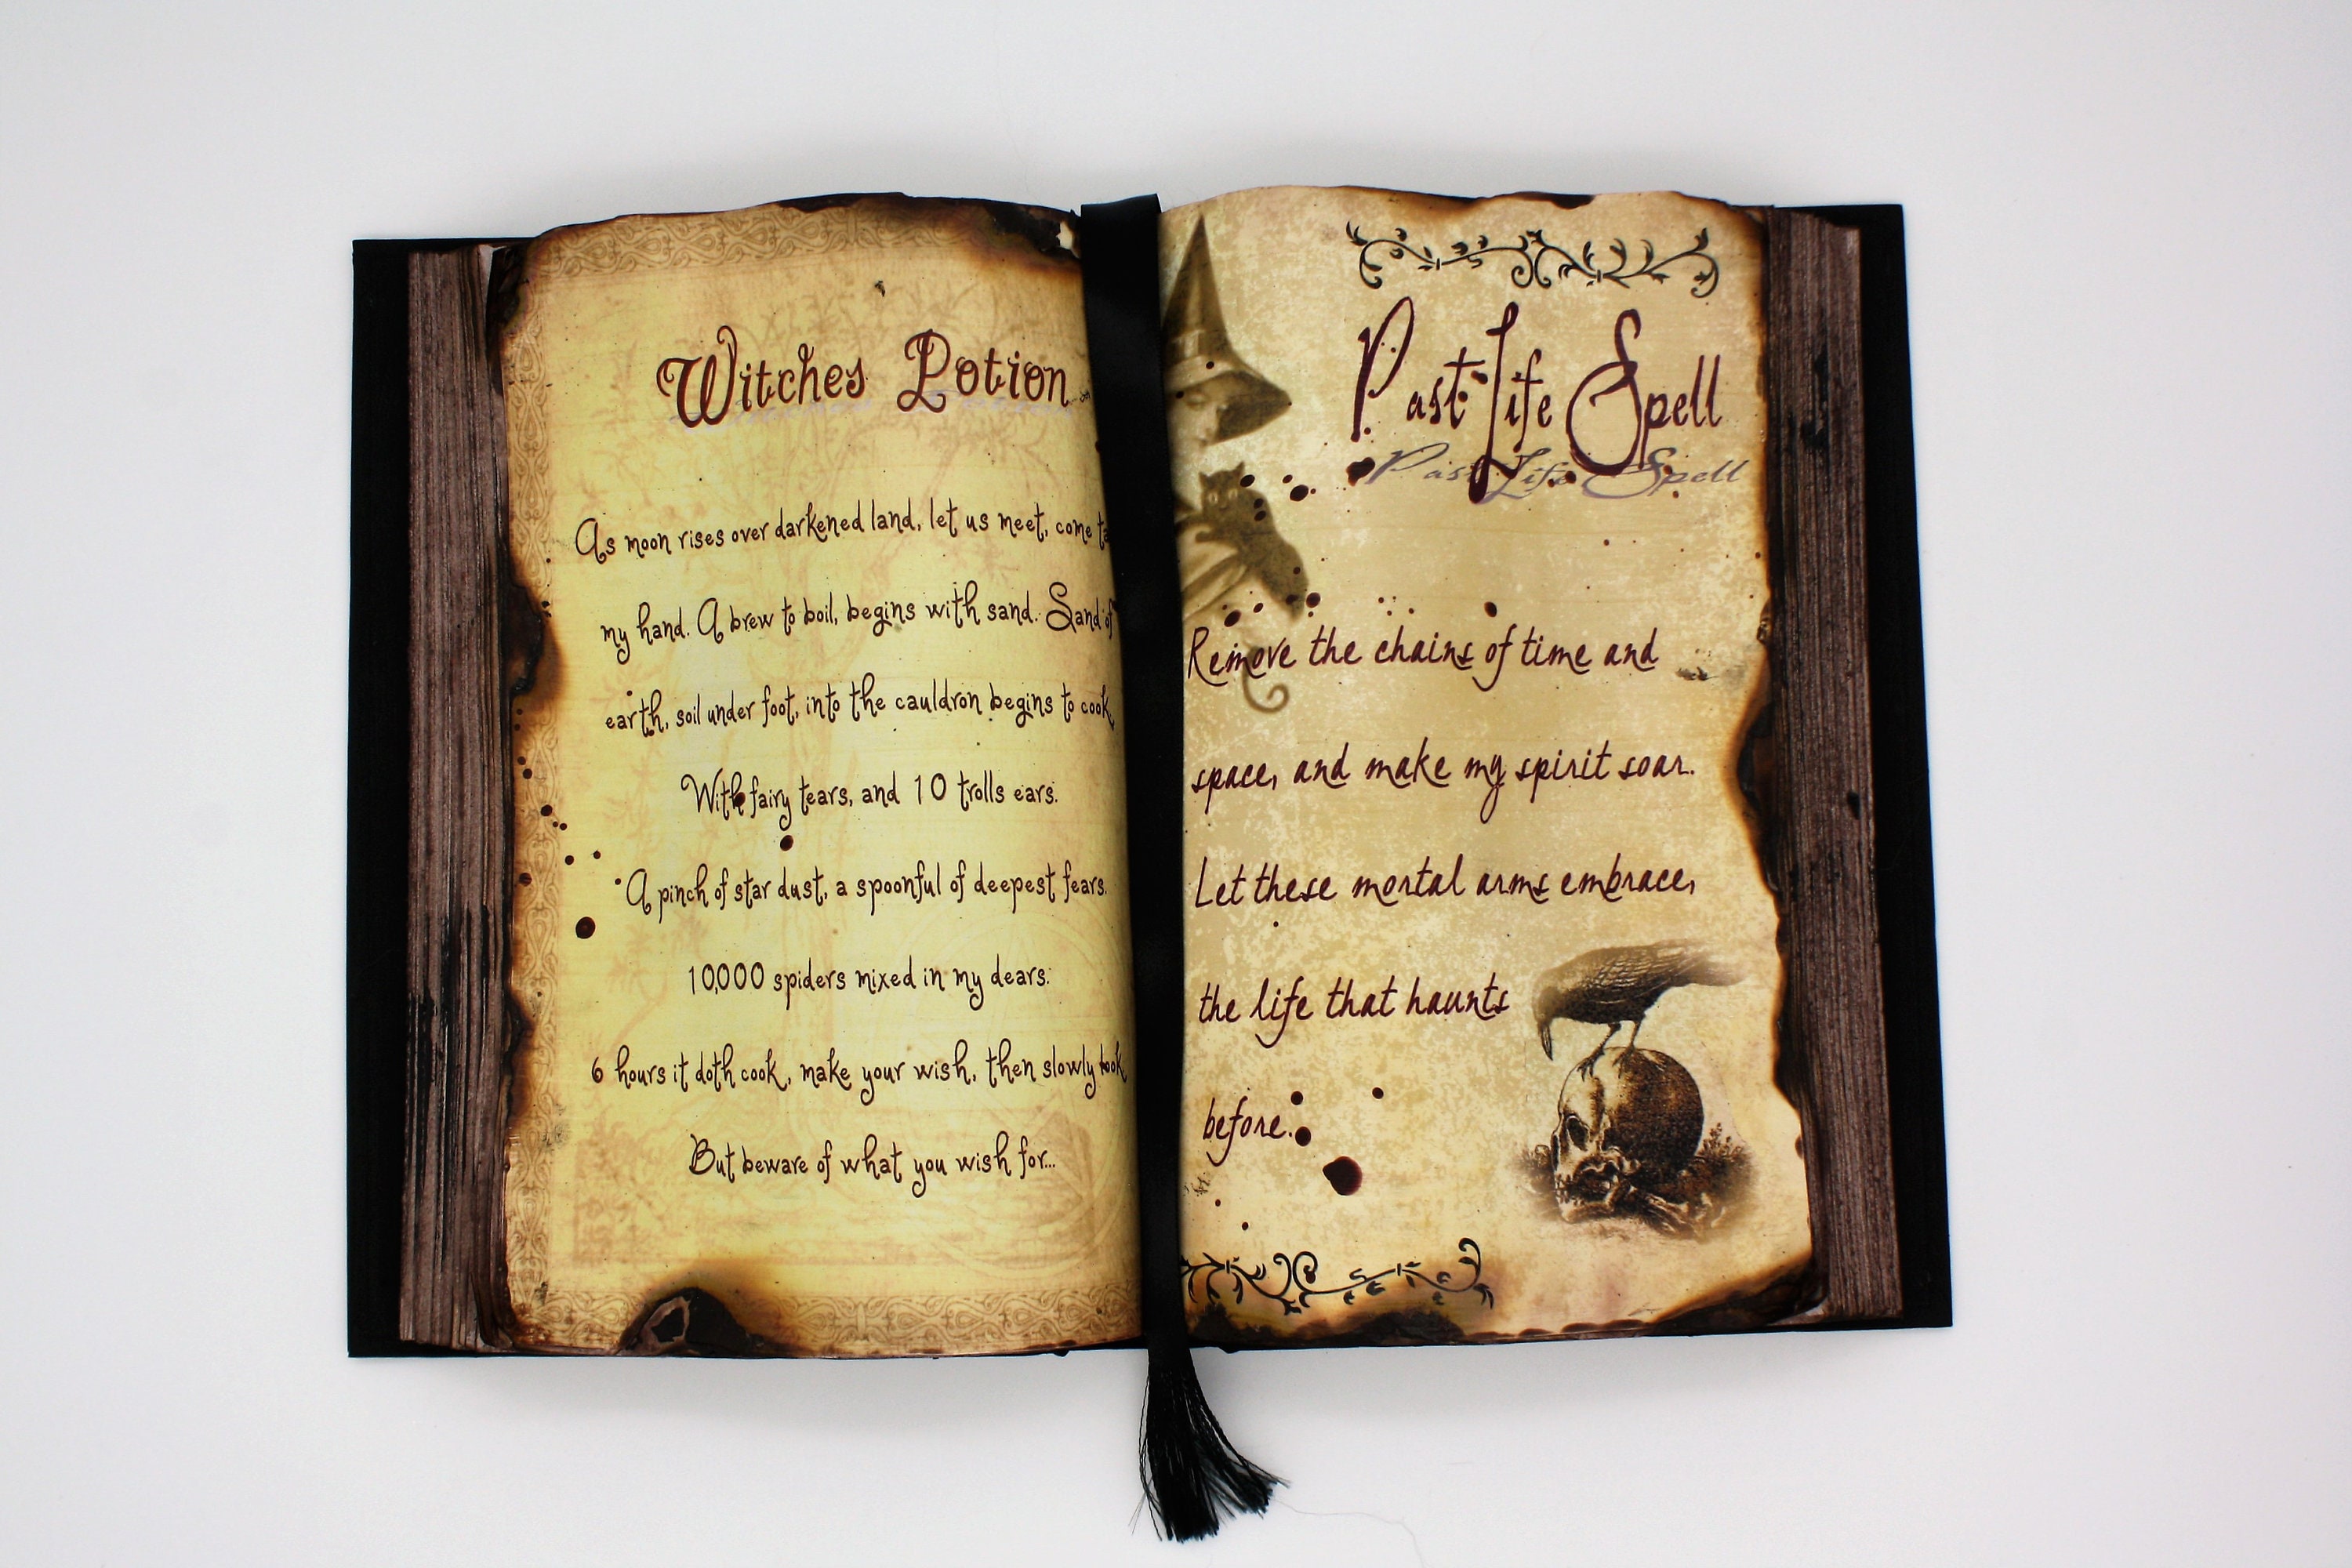 Witches Potion
As moon rises over darkened land, let us meet, come
my hand. A brew to boil, begins with sand. Sand of
earth, soil under foot, into the cauldron begins to cook
With fairy tears, and 10 trolls ears.
A pinch of star dust, a spoonful of deepest fears.
10,000 spiders mixed in my dears.
6 hours it doth cook, make your wish, then slowly
But beware of what you wish for...
Past Life Spell
Past Life Spell
Remove the chains of time and
space, and make my spirit soar.
Let these mortal arms embrace,
the life that haunts
before.